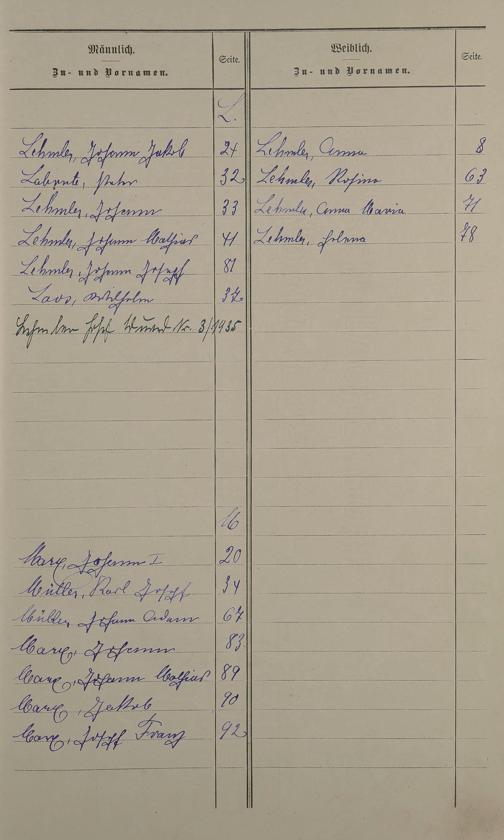 Männlich. Seite. Weiblich. Seite.
Zu- und Vornamen. Zu- und Vornamen.
L.
Lehmler, Johann Jakob 24 Lehmler, Anna 8
Laborte, Peter 32 Lehmler, Rosina 63
Lehmler, Johann 33 Lehmler, Anna Maria 71
Lehmler, Johann Mathias 41 Lehmler, Helena 78
Lehmler, Johann Joseph 81
Laos, Wilhelm 37
Lehmler Josef Nr. 3/1935
M
Marx, Johann I 20
Müller, Karl Joseph 34
Müller, Johann Adam 67
Marx, Johann 83
Marx, Johann Mathias 89
Marx, Jakob 90
Marx, Joseph Franz 92